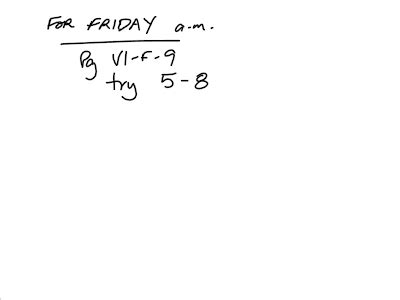 FOR FRIDAY a.m.
Pg VI-F-9
try 5-8